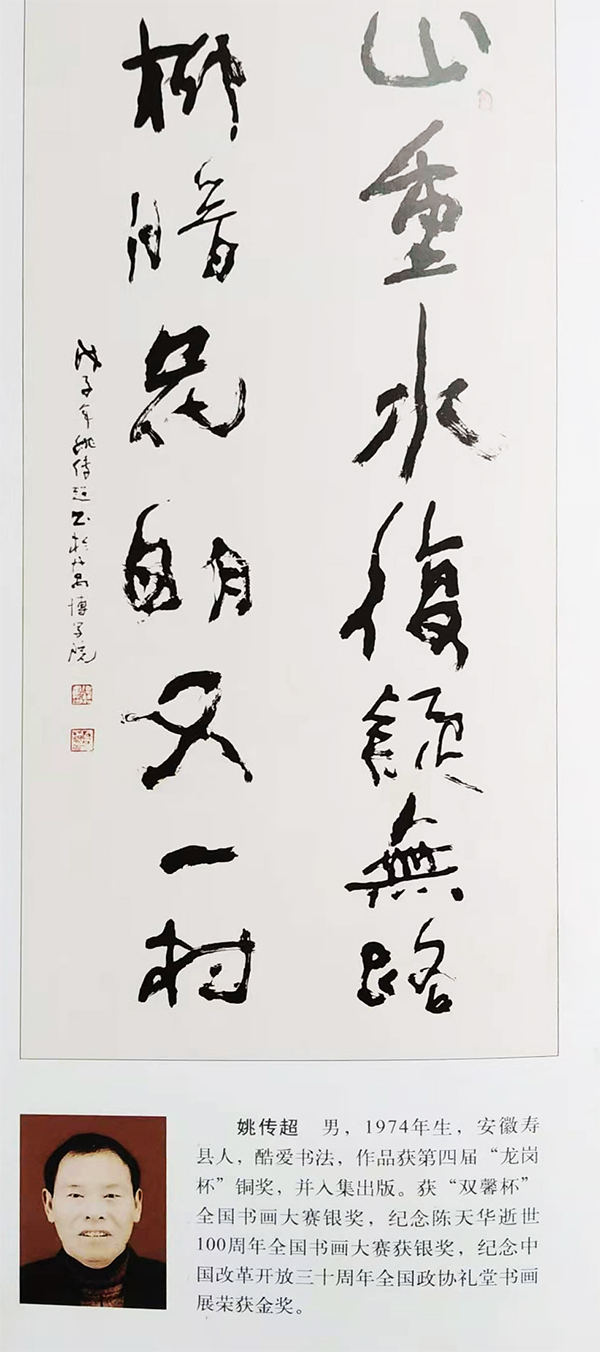 山重水復疑無路
柳暗花明又一村
戊子年姚传超书於丹昌博学院
姚传超 男，1974年生，安徽寿
县人，酷爱书法，作品获第四届“龙岗
杯”铜奖，并入集出版。获“双馨杯”
全国书画大赛银奖，纪念陈天华逝世
100周年全国书画大赛获银奖，纪念中
国改革开放三十周年全国政协礼堂书画
展荣获金奖。